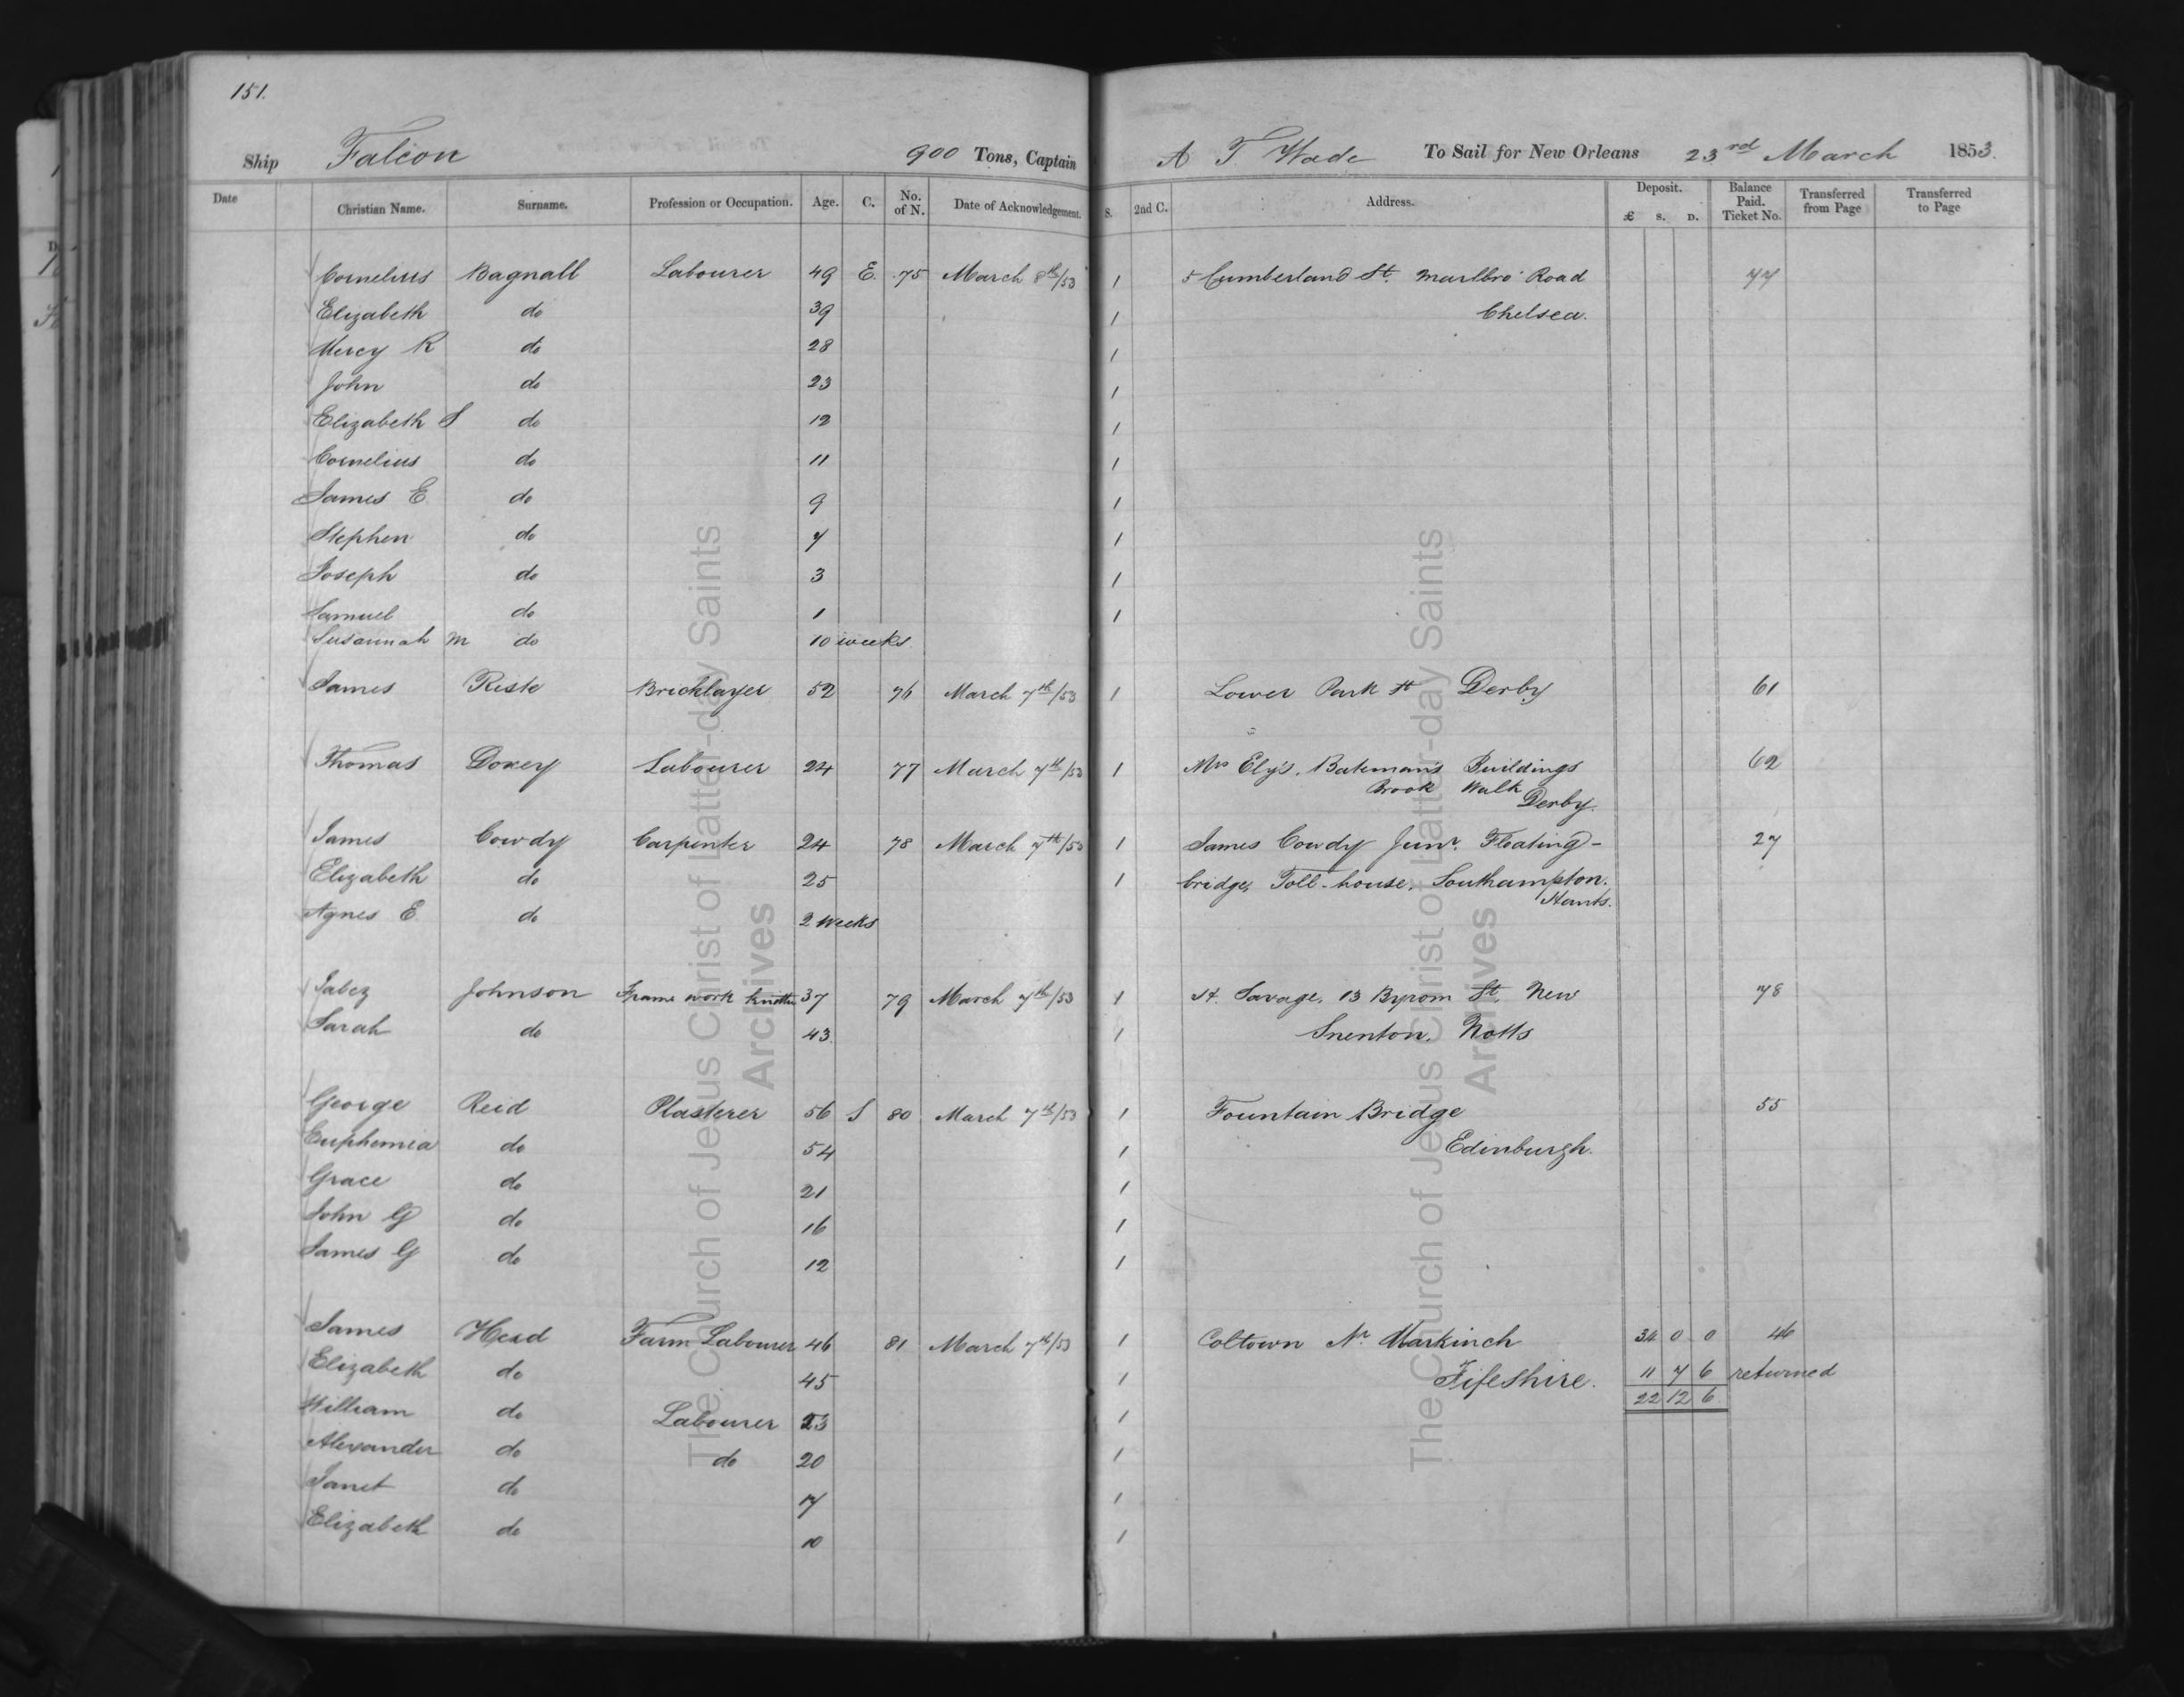 151.
Ship Falcon 900 Tons, Captain A T Wade To Sail for New Orleans 23rd March 1853.
Date Christian Name. Surname. Profession or Occupation. Age. C. No. of N. Date of Acknowledgement. S. 2nd C. Address. Deposit. £ s. D. Balance Paid. Ticket No. Transferred from Page Transferred to Page
Cornelius Bagnall Labourer 49 E. 75 March 8th/53 1 5 Cumberland St. Marlbro' Road 77
Elizabeth do 39 1 Chelsea.
Mercy R do 28 1
John do 23 1
Elizabeth S do 12 1
Cornelius do 11 1
James E do 9 1
Stephen do 7 1
Joseph do 3 1
Samuel do 1 1
Susannah M do 10 weeks
James Riste Bricklayer 52 76 March 7th/53 1 Lower Park St Derby 61
Thomas Doxey Labourer 24 77 March 7th/53 1 Mrs Ely's, Bateman's Buildings 62
Brook Walk
Derby.
James Cowdy Carpenter 24 78 March 7th/53 1 James Cowdy Junr. Floating- 27
Elizabeth do 25 1 bridge, Toll-house, Southampton.
Hants.
Agnes E do 2 weeks
Jabez Johnson Frame work knitter 37 79 March 7th/53 1 Savage, 13 Byrom St, New 78
Sarah do 43 1 Snenton, Notts
George Reid Plasterer 56 S 80 March 7th/53 1 Fountain Bridge 55
Euphemia do 54 1 Edinburgh.
Grace do 21 1
John G do 16 1
James G do 12 1
James Head Farm Labourer 46 81 March 7th/53 1 Coltown Nr Markinch 34 0 0 46
Elizabeth do 45 1 Fifeshire. 11 7 6 returned
William do Labourer 23 1 22 12 6
Alexander do do 20 1
Janet do 17 1
Elizabeth do 10 1
The Church of Jesus Christ of Latter-day Saints
Archives
The Church of Jesus Christ of Latter-day Saints
Archives